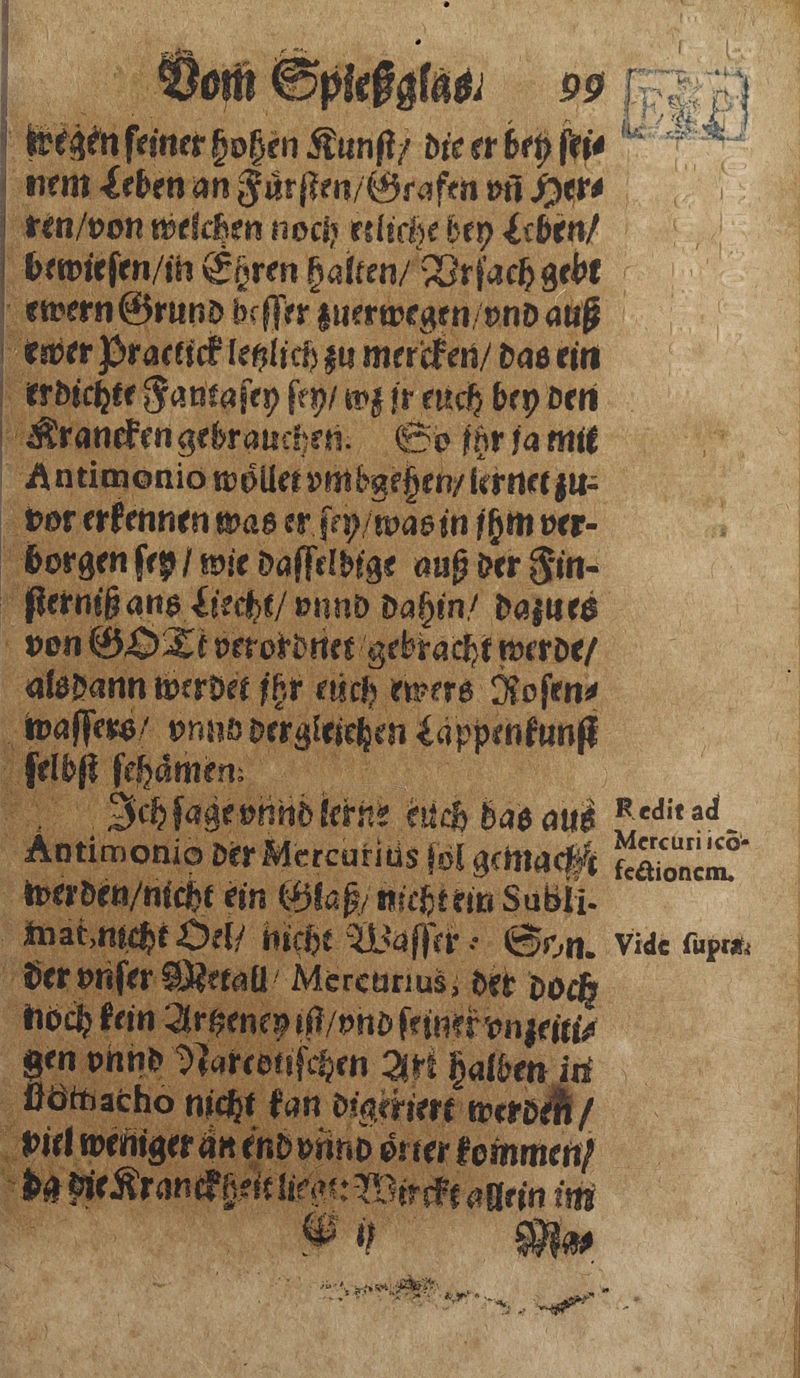 Vom Spießglas. 99
wegen seiner hohen Kunst/ die er bey sei-
nem Leben an Fürsten/Grafen vñ Her-
ren/von welchen noch etliche bey Leben/
bewiesen/in Ehren halten/ Vrsach gebt
ewern Grund besser zuerwegen/vnd auß
ewer Practick letzlich zu mercken/ das ein
erdichte Fantasey sey/ wz jr euch bey den
Krancken gebrauchen. So jhr ja mit
Antimonio wöllet vmbgehen/ lernet zu-
vor erkennen was er sey/was in jhm ver-
borgen sey / wie dasselbige auß der Fin-
sterniß ans Liecht/ vnnd dahin/ dazu es
von GOTt verordnet gebracht werde/
alsdann werdet jhr euch ewers Rosen-
wassers/ vnnd dergleichen Lappenkunst
selbst schämen.
Ich sage vnnd lerne euch das aus
Redit ad
Antimonio der Mercurius sol gemacht
Mercuri icō-
fectionem.
werden/nicht ein Glaß/ nicht ein Subli-
mat, nicht Oel/ nicht Wasser:
Vide supra.
der vnser Metall Mercurius, der doch
noch kein Artzeney ist/vnd seiner vnzeiti-
gen vnnd Narcotischen Art halben in
stomacho nicht kan digeriert werden /
viel weniger an end vnnd örter kommen/
da die Kranckheit liegt: Wirckt allein im
G ij Ma-